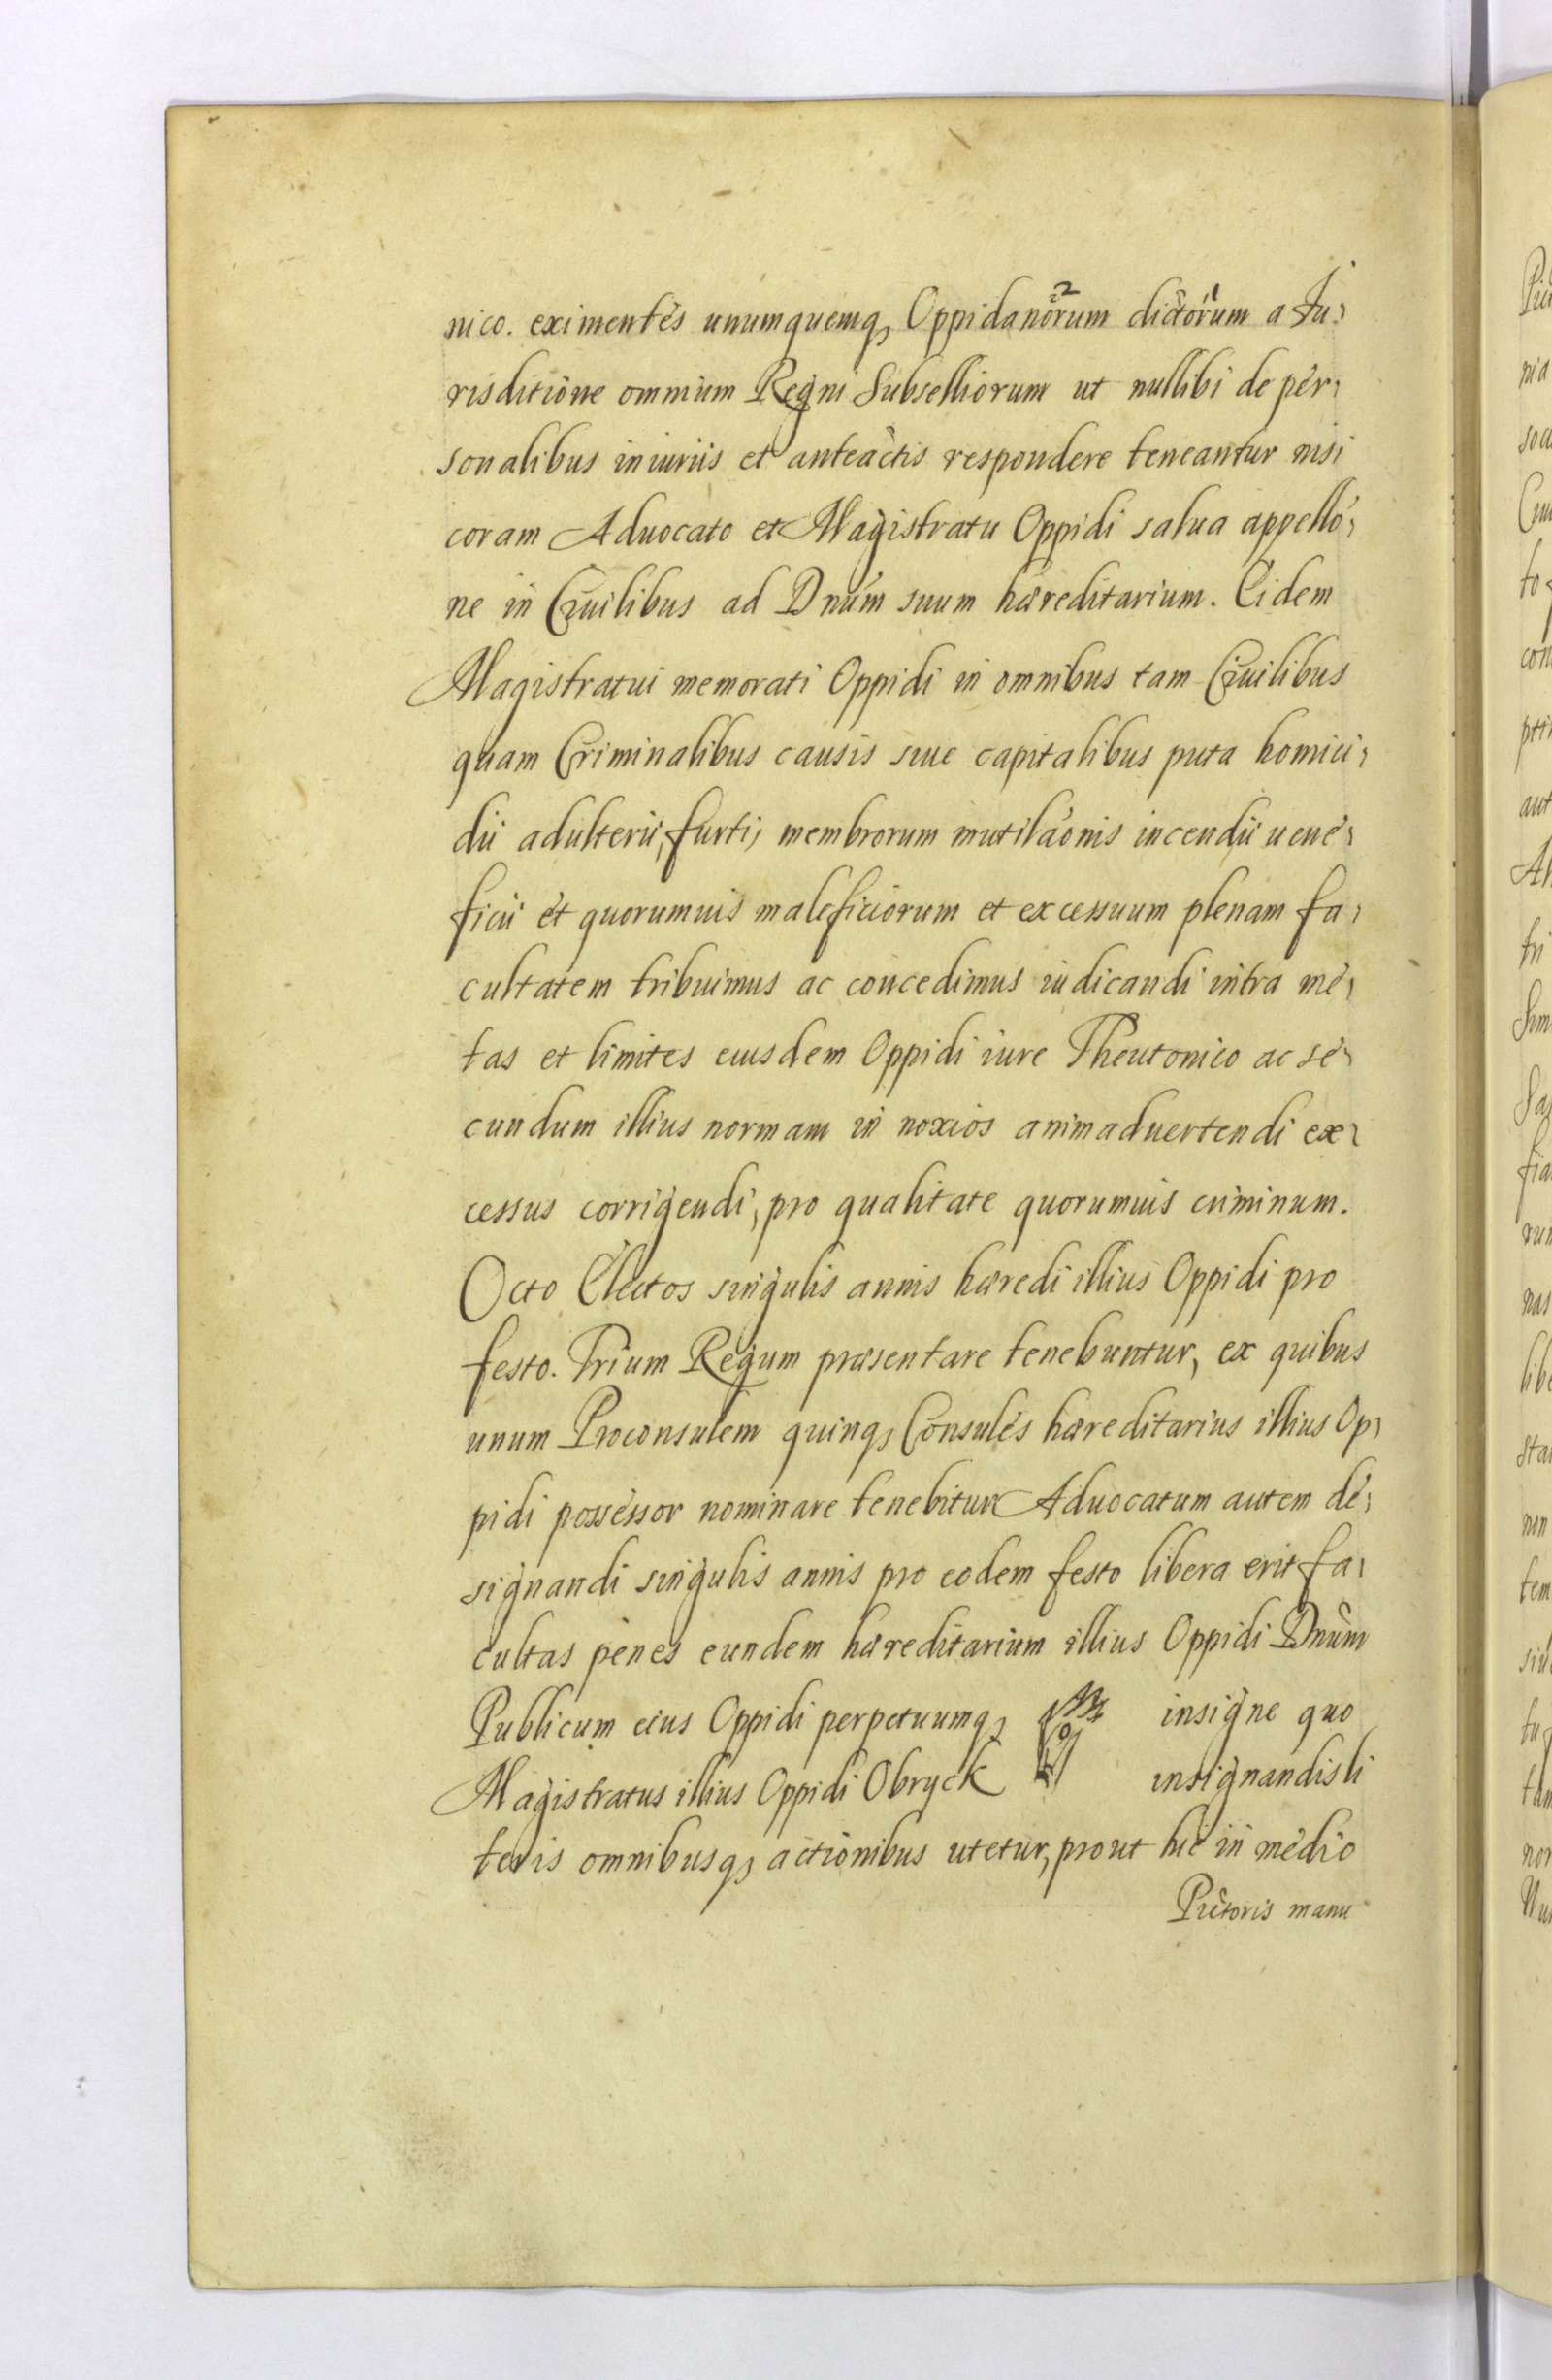 nico. eximentes unumquemq, Oppidanorum dictorum a Iu,
risditione omnium Regni Subselliorum ut nullibi de per,
sonalibus iniuriis et anteactis respondere teneantur nisi
coram Aduocato et Magistratu Oppidi salua appello,
ne in Ciuilibus ad Dnum suum hæreditarium. Eidem
Magistratui memorati Oppidi in omnibus tam Ciuilibus
quam Criminalibus causis siue capitalibus puta homici,
dii adulterii, furti, membrorum mutilaonis incendii uene,
ficii et quorumuis maleficiorum et excessuum plenam fa,
cultatem tribuimus ac concedimus iudicandi intra me,
tas et limites eiusdem Oppidi iure Theutonico ac se,
cundum illius normam in noxios animaduertendi ex,
cessus corrigendi, pro qualitate quorumuis criminum.
Octo Electos singulis annis hæredi illius Oppidi pro
festo. Trium Regum præsentare tenebuntur, ex quibus
unum Proconsulem quinq, Consules hæreditarius illius Op,
pidi possessor nominare tenebitur Aduocatum autem de,
signandi singulis annis pro eodem festo libera erit fa,
cultas penes eundem hæreditarium illius Oppidi Dnum
Publicum eius Oppidi perpetuumq, insigne quo
Magistratus illius Oppidi Obryck insignandis li
teris omnibusq, actionibus utetur, prout hic in medio
Pictoris manu